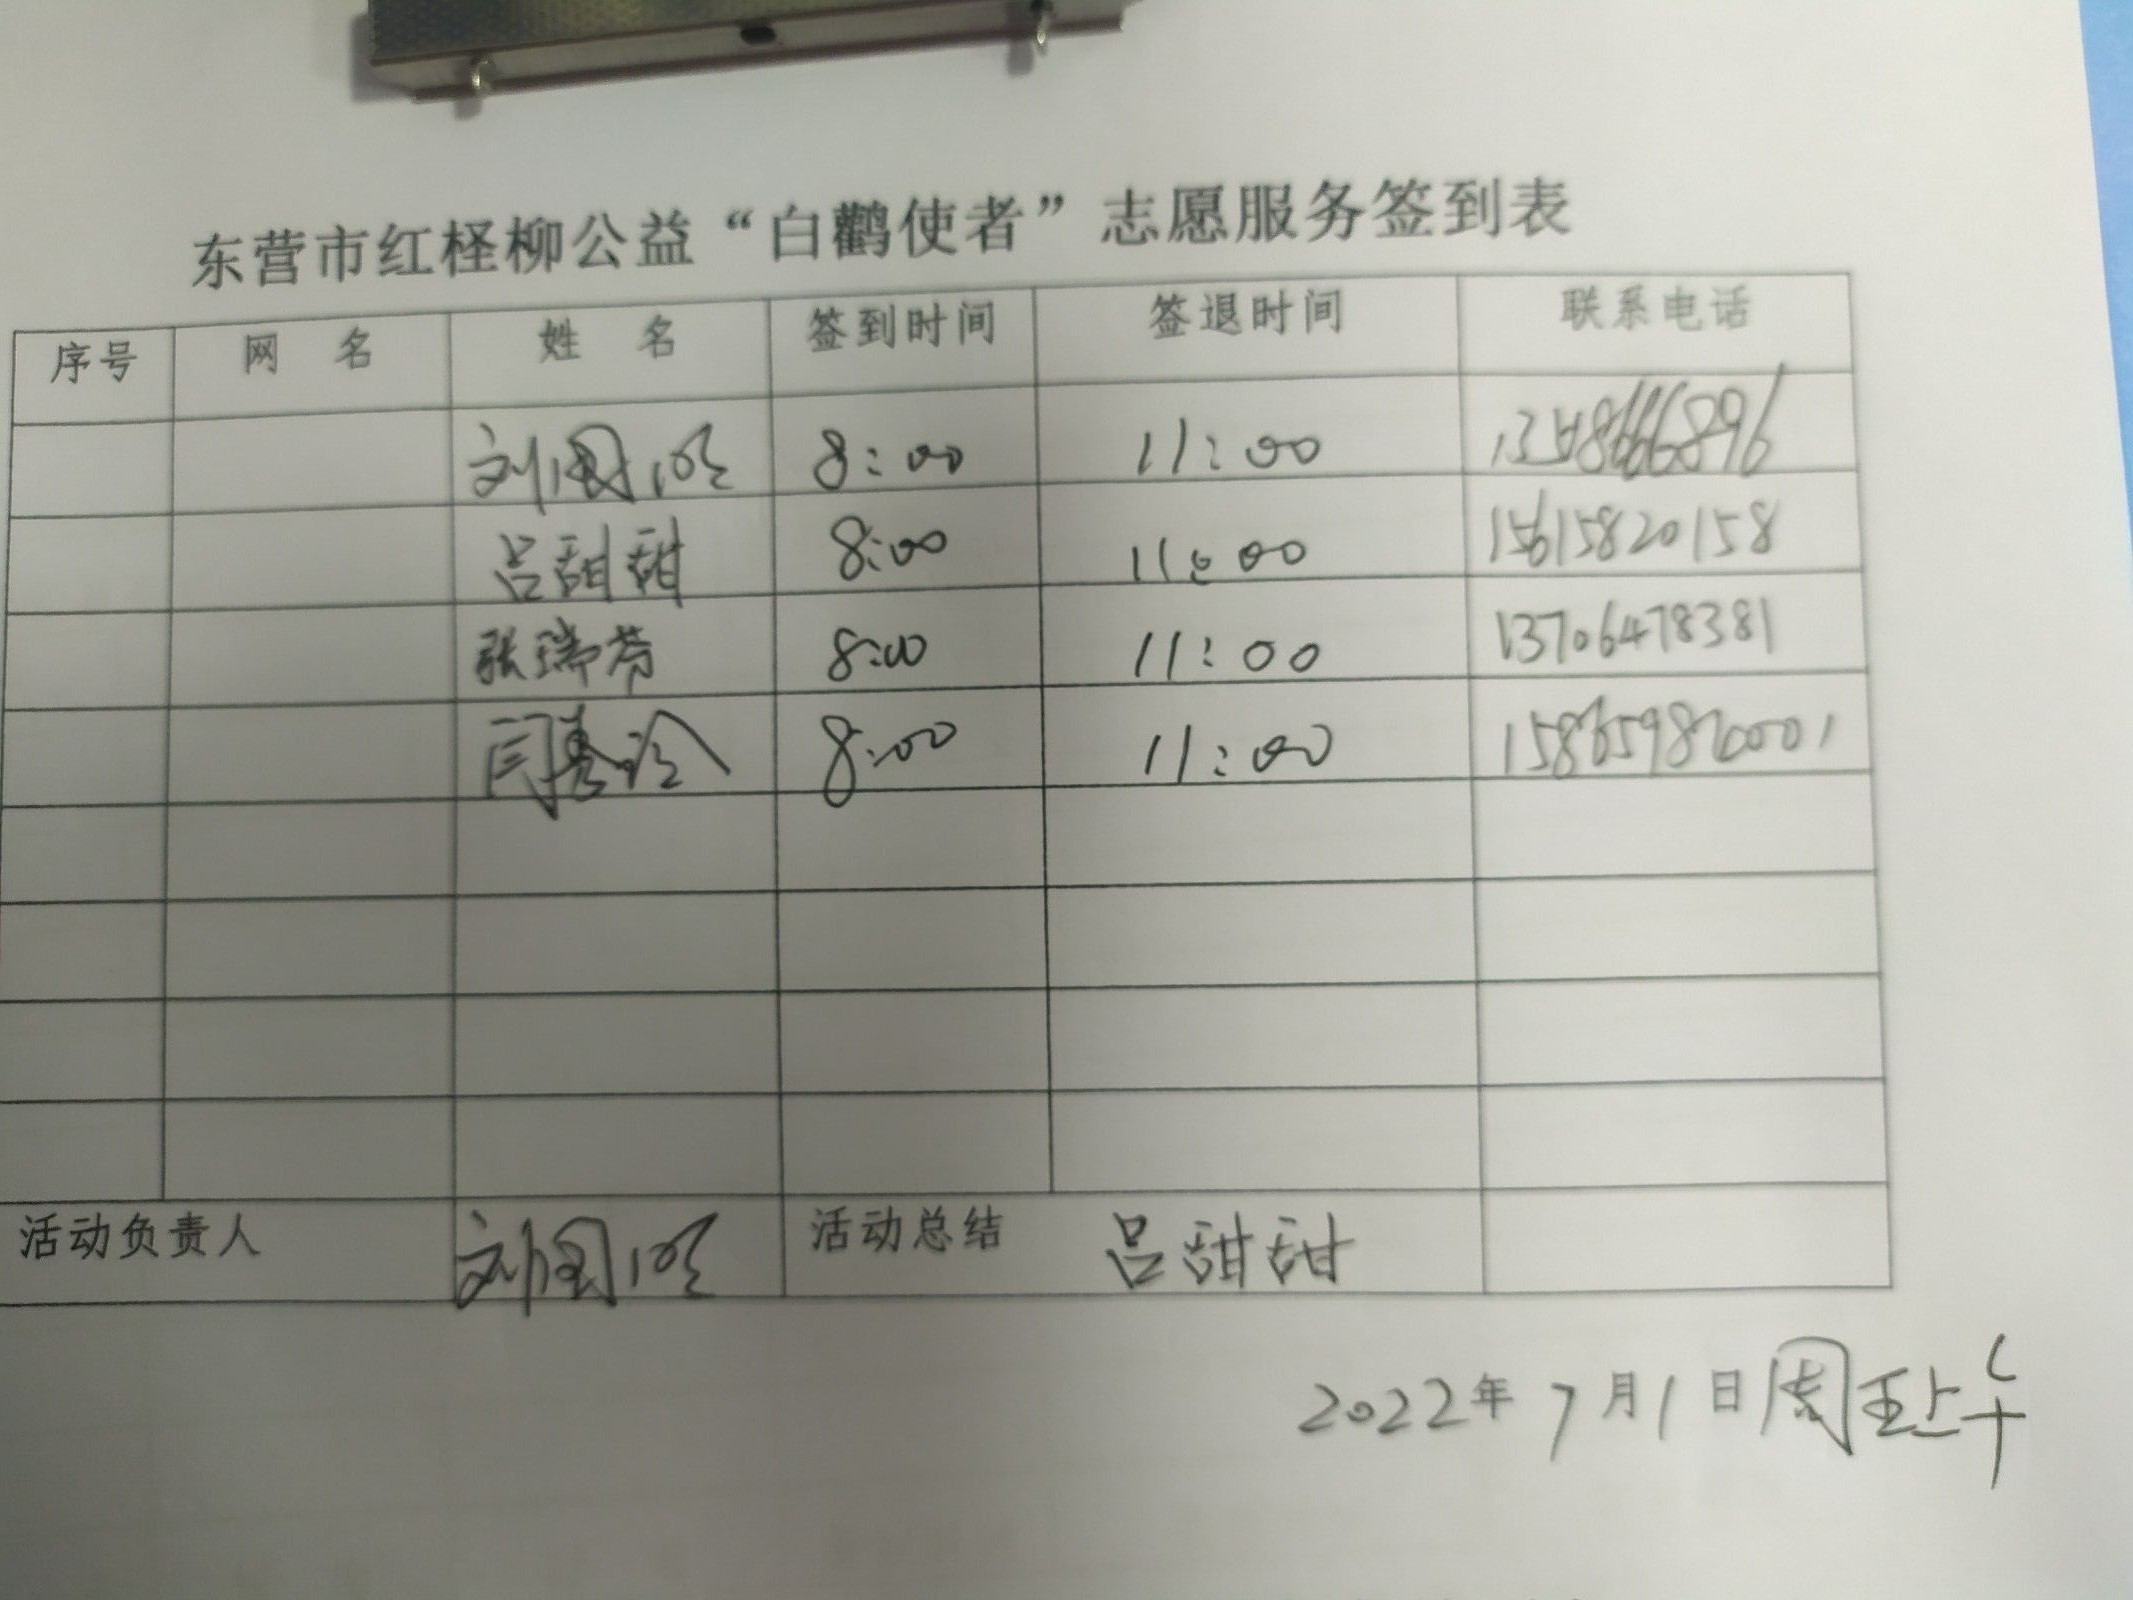 东营市红柽柳公益“白鹳使者”志愿服务签到表
序号 网 名 姓 名 签到时间 签退时间 联系电话
刘国明 8:00 11:00
吕甜甜 8:00 11:00 15615820158
张瑞芳 8:00 11:00 13706478381
闫秀玲 8:00 11:00
活动负责人 刘国明 活动总结 吕甜甜
2022年7月1日周五上午